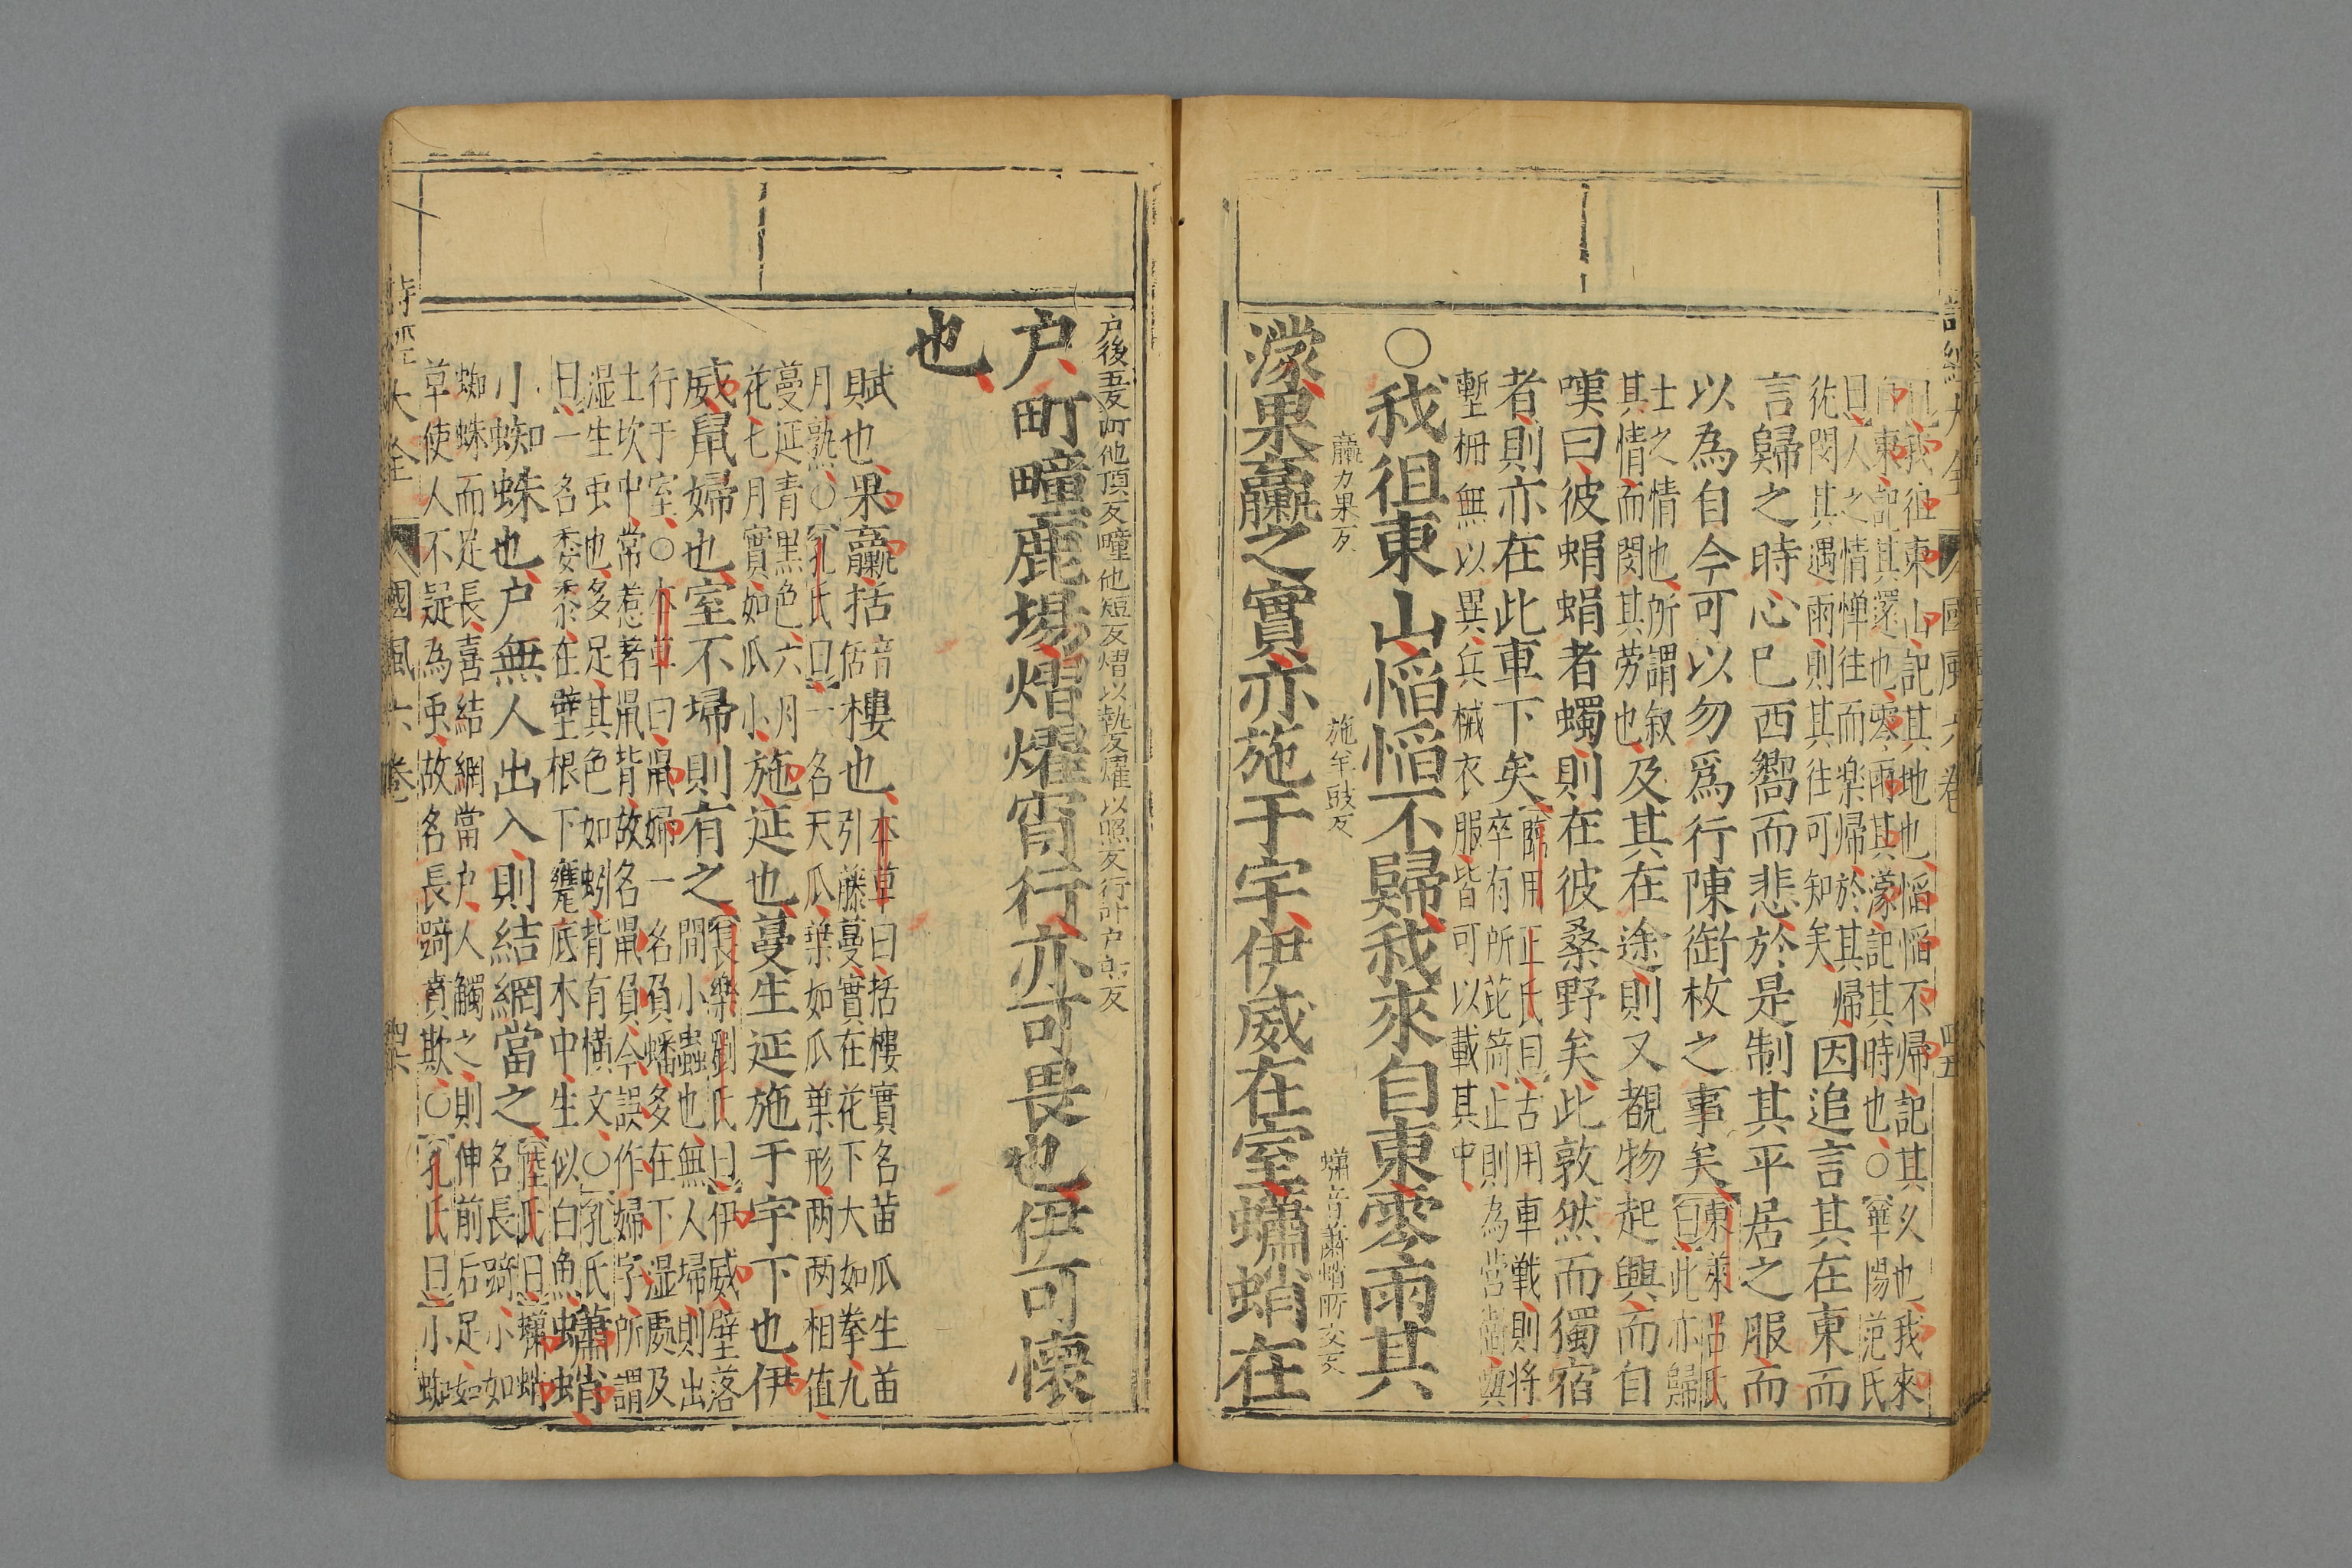 詩經大全 國風六卷 四五
曰我徂東山記其地也慆慆不帰記其久也我來
自東記其還也零雨其濛記其時也○華陽范氏
曰人之情憚往而楽帰於其帰
從閔其遇雨則其往可知矣因追言其在東而
言歸之時心已西嚮而悲於是制其平居之服而
以為自今可以勿爲行陳銜枚之事矣東萊呂氏
曰此亦歸
士之情也所謂叙
其情而閔其劳也及其在途則又覩物起興而自
嘆曰彼蜎蜎者蠋則在彼桑野矣此敦然而獨宿
者則亦在此車下矣臨川王氏曰古用車戰則将
卒有所芘 止則為營衛與
塹柵無以異兵械衣服皆可以載其中
○我徂東山慆慆不歸我來自東零雨其
蠃力果反 施羊豉反 蠨音蕭蛸所交反
濛果蠃之實亦施于宇伊威在室蠨蛸在
户後五反町他頂反畽他短反熠以執反燿以照反行叶户郎反
户町畽鹿場熠燿宵行亦可畏也伊可懷
也
賦也果蠃括音括樓也本草曰括樓實名苗瓜生苗
引藤蔓實在花下大如拳九
月熟○孔氏曰一名天瓜葉如瓜葉形两两相值
蔓延青黒色六月
花七月實如瓜小施延也蔓生延施于宇下也伊
威鼠婦也室不埽則有之長樂劉氏曰伊威壁落
間小蟲也無人埽則出
行于室○本草曰鼠婦一名負蟠多在下湿處及
土坎中常惹著鼠背故名鼠負今誤作婦字所謂
湿生虫也多足其色如蚓背有横文○孔氏
曰一名委黍在壁根下甕底木中生似白魚蟲蠨蛸
小蜘蛛也户無人出入則結網當之陸氏曰蠨蛸
名長踦小如
蜘蛛而足長喜結網當户人觸之則伸前后足如
草使人不疑為虫故名長踦賁欺○孔氏曰小蜘
詩經大全 國風六卷 四六